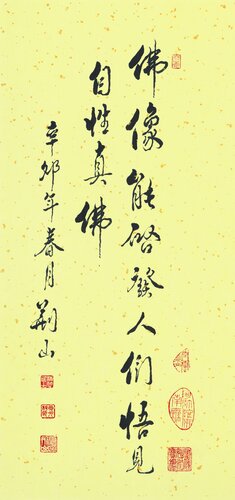 佛像能啓發人们悟見
自性真佛
辛卯年春月荆山